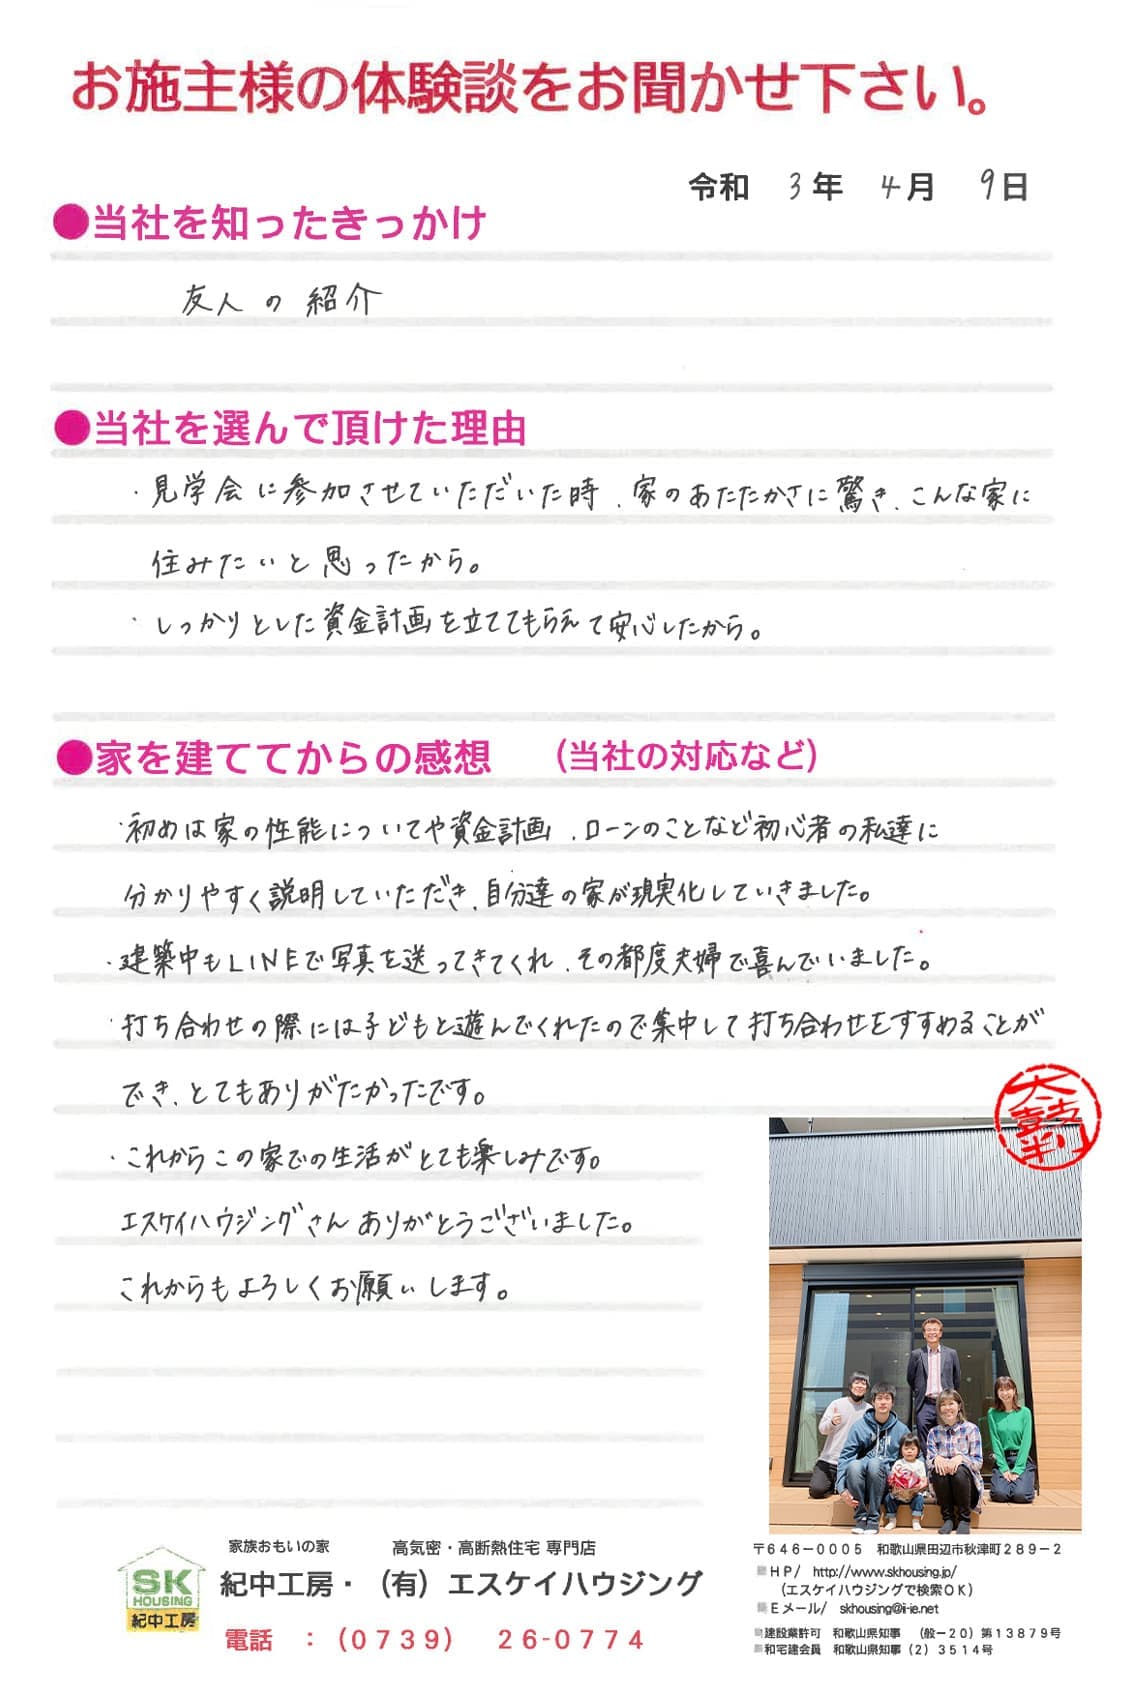 お施主様の体験談をお聞かせ下さい。
令和 3年 4月 9日
●当社を知ったきっかけ
友人の紹介
●当社を選んで頂けた理由
・見学会に参加させていただいた時、家のあたたかさに驚き、こんな家に
住みたいと思ったから。
・しっかりとした資金計画を立ててもらえて安心したから。
●家を建ててからの感想 (当社の対応など)
・初めは家の性能についてや資金計画、ローンのことなど初心者の私達に
分かりやすく説明していただき、自分達の家が現実化していきました。
・建築中もLINEで写真を送ってきてくれ、その都度夫婦で喜んでいました。
・打ち合わせの際には子どもと遊んでくれたので集中して打ち合わせをすすめることが
でき、とてもありがたかったです。
・これからこの家での生活がとても楽しみです。
エスケイハウジングさんありがとうございました。
これからもよろしくお願いします。
家族おもいの家 高気密・高断熱住宅 専門店
SK
HOUSING
紀中工房
紀中工房・(有)エスケイハウジング
電話 :(0739) 26-0774
〒646-0005 和歌山県田辺市秋津町289-2
HP/ http://www.skhousing.jp/
(エスケイハウジングで検索OK)
Eメール/ skhousing@ii-ie.net
建設業許可 和歌山県知事 (般-20)第13879号
和宅建会員 和歌山県知事(2)3514号